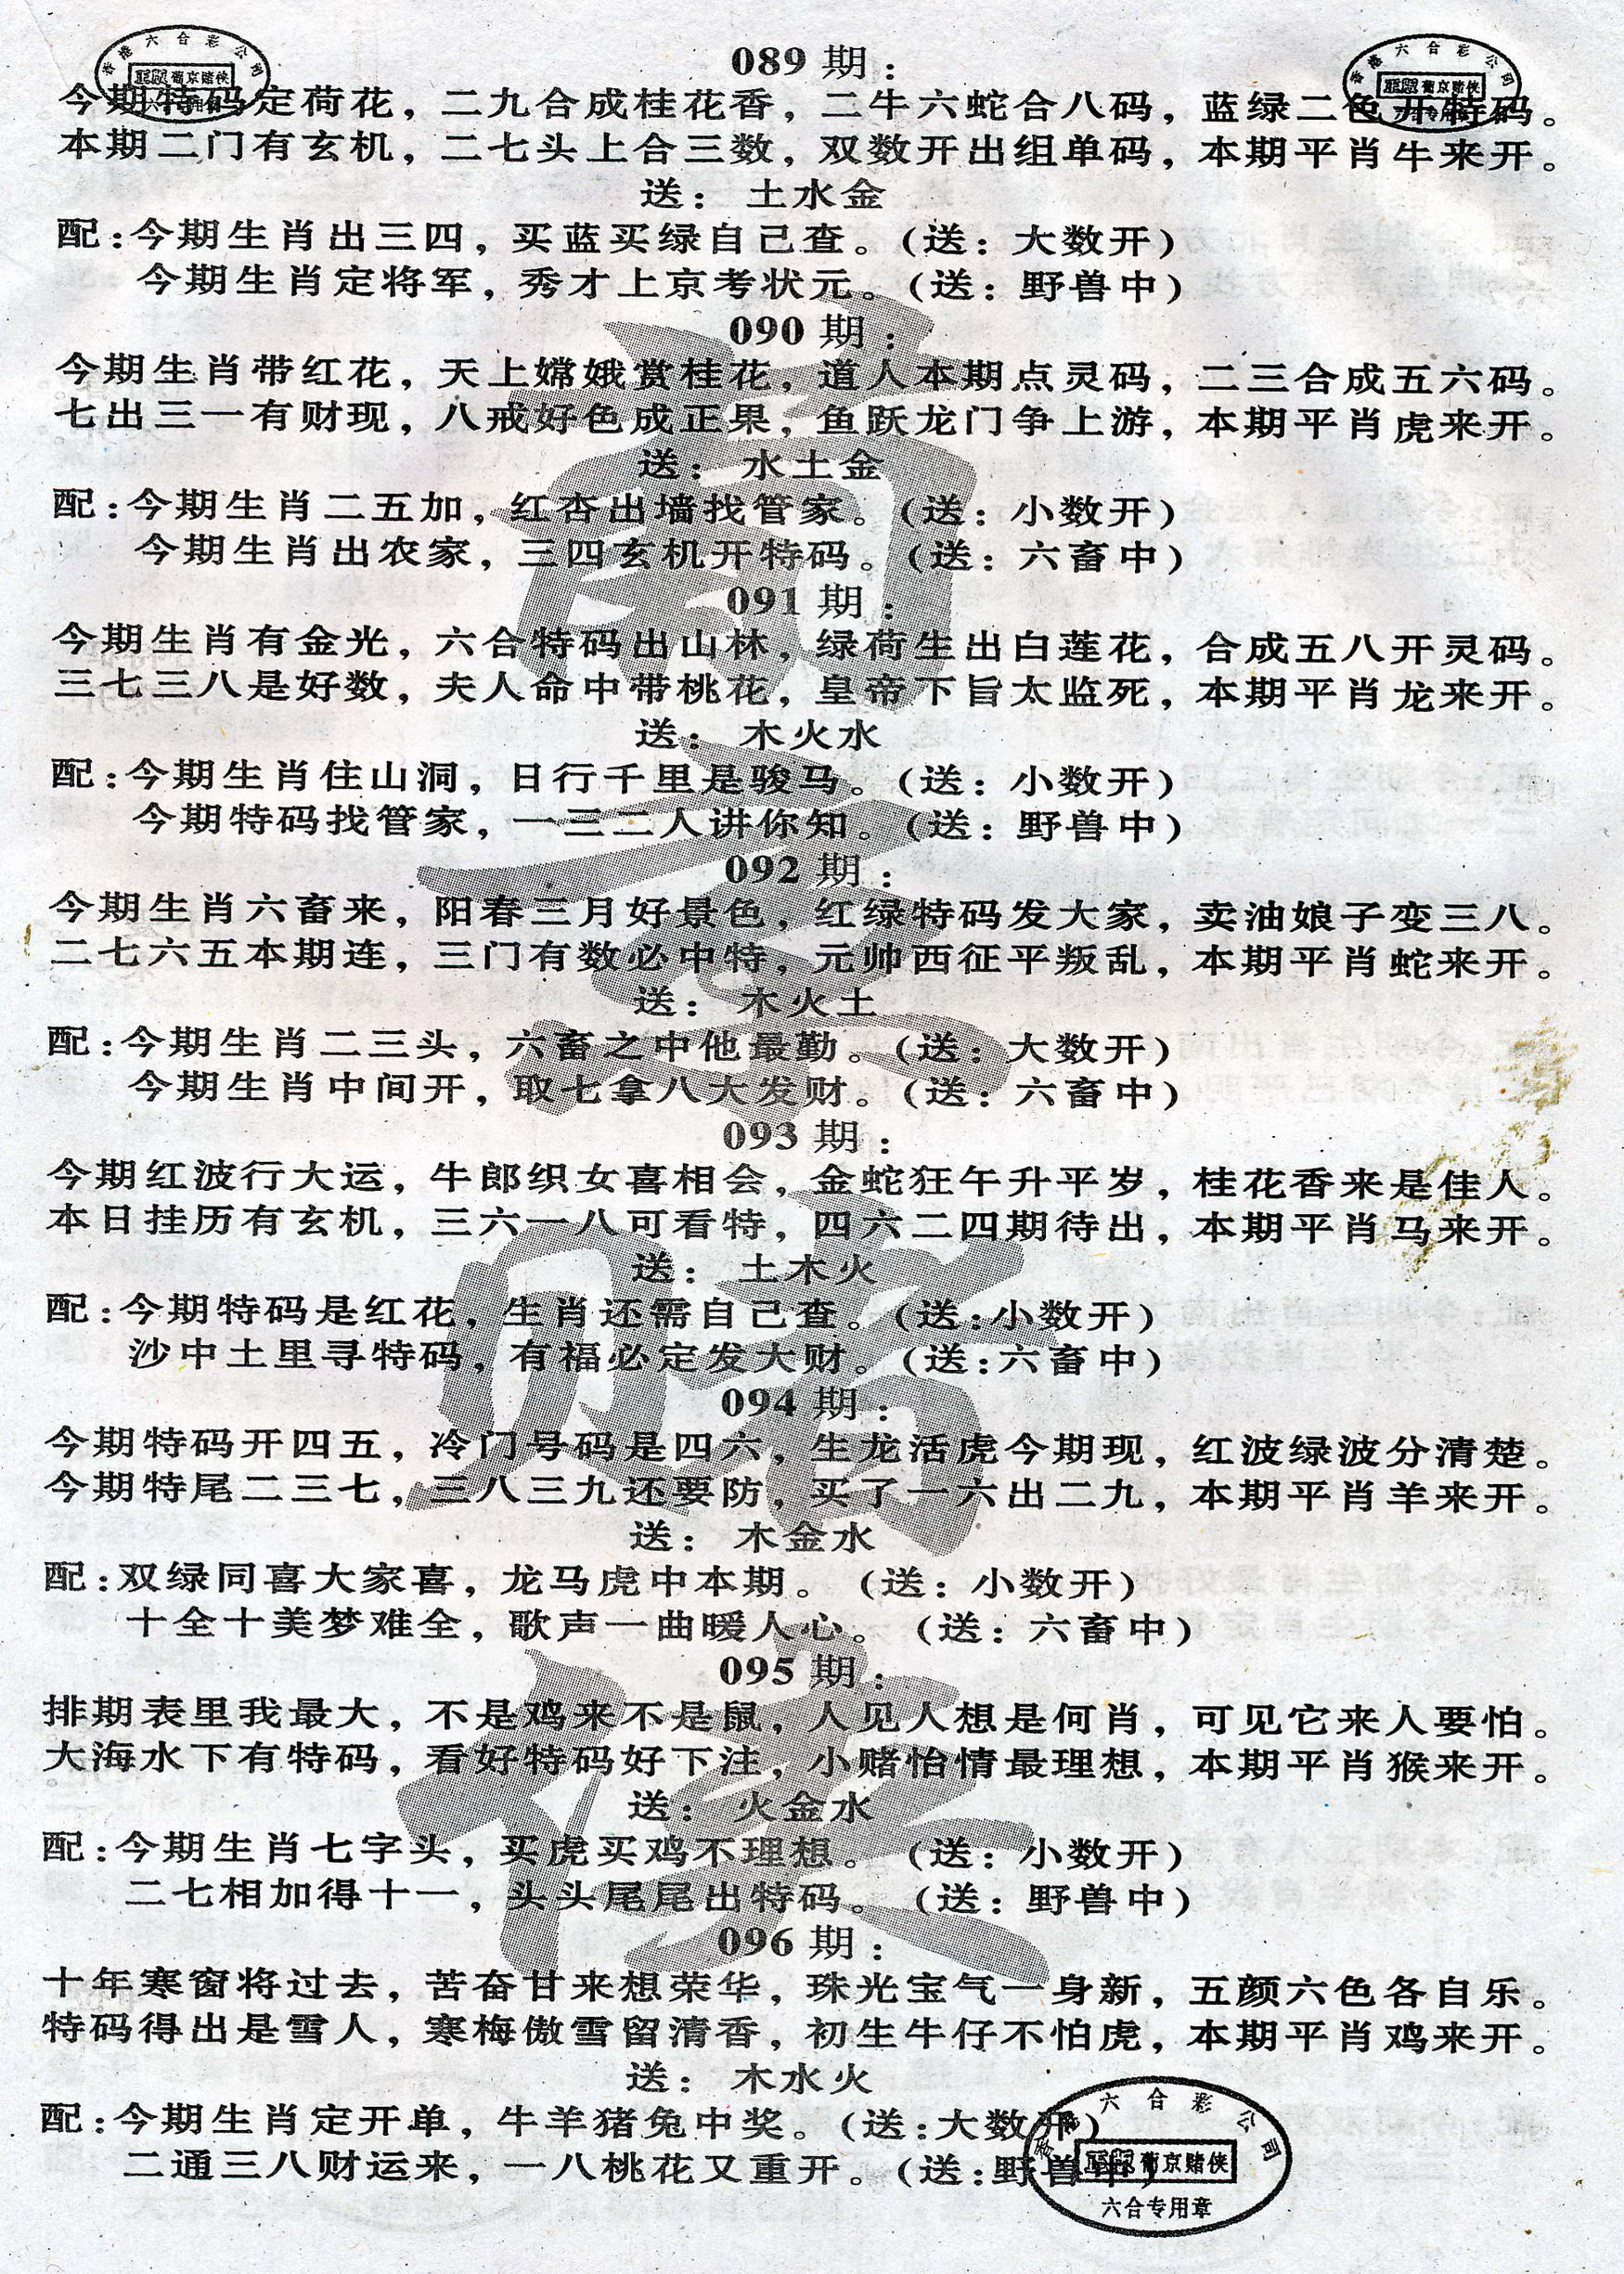 089 期：
今期特码定荷花，二九合成桂花香，二牛六蛇合八码，蓝绿二色开特码。
本期二门有玄机，二七头上合三数，双数开出组单码，本期平肖牛来开。
送： 土水金
配：今期生肖出三四，买蓝买绿自己查。（送：大数开）
今期生肖定将军，秀才上京考状元。（送：野兽中）
090 期：
今期生肖带红花，天上嫦娥赏桂花，道人本期点灵码，二三合成五六码。
七出三一有财现，八戒好色成正果，鱼跃龙门争上游，本期平肖虎来开。
送： 水土金
配：今期生肖二五加，红杏出墙找管家。（送：小数开）
今期生肖出农家，三四玄机开特码。（送：六畜中）
091 期：
今期生肖有金光，六合特码出山林，绿荷生出白莲花，合成五八开灵码。
三七三八是好数，夫人命中带桃花，皇帝下旨太监死，本期平肖龙来开。
送： 木火水
配：今期生肖住山洞，日行千里是骏马。（送：小数开）
今期特码找管家，一三二人讲你知。（送：野兽中）
092 期：
今期生肖六畜来，阳春三月好景色，红绿特码发大家，卖油娘子变三八。
二七六五本期连，三门有数必中特，元帅西征平叛乱，本期平肖蛇来开。
送： 木火土
配：今期生肖二三头，六畜之中他最勤。（送：大数开）
今期生肖中间开，取七拿八大发财。（送：六畜中）
093 期：
今期红波行大运，牛郎织女喜相会，金蛇狂午升平岁，桂花香来是佳人。
本日挂历有玄机，三六一八可看特，四六二四期待出，本期平肖马来开。
送： 土木火
配：今期特码是红花，生肖还需自己查。（送：小数开）
沙中土里寻特码，有福必定发大财。（送：六畜中）
094 期：
今期特码开四五，冷门号码是四六，生龙活虎今期现，红波绿波分清楚。
今期特尾二三七，三八三九还要防，买了一六出二九，本期平肖羊来开。
送： 木金水
配：双绿同喜大家喜，龙马虎中本期。（送：小数开）
十全十美梦难全，歌声一曲暖人心。（送：六畜中）
095 期：
排期表里我最大，不是鸡来不是鼠，人见人想是何肖，可见它来人要怕。
大海水下有特码，看好特码好下注，小赌怡情最理想，本期平肖猴来开。
送： 火金水
配：今期生肖七字头，买虎买鸡不理想。（送：小数开）
二七相加得十一，头头尾尾出特码。（送：野兽中）
096 期：
十年寒窗将过去，苦奋甘来想荣华，珠光宝气一身新，五颜六色各自乐。
特码得出是雪人，寒梅傲雪留清香，初生牛仔不怕虎，本期平肖鸡来开。
送： 木水火
配：今期生肖定开单，牛羊猪兔中奖。（送：大数开）
二通三八财运来，一八桃花又重开。（送：野兽中）
香港六合彩公司
葡京赌侠
六合专用章